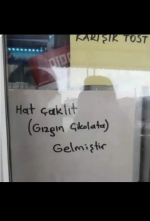 KARIŞIK TOST
Hat Çaklıt
(Gızgın Çikolata)
Gelmiştir